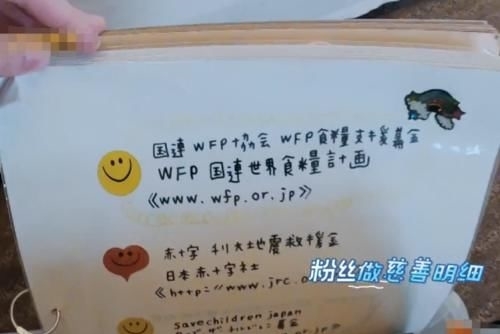 国連WFP協会 WFP食糧支援募金
WFP 国連世界食糧計画
《www.wfp.or.jp》
赤十字 利大地震救援金
日本赤十字社
《http://www.jrc.o
粉丝做慈善明细
savechildren japan